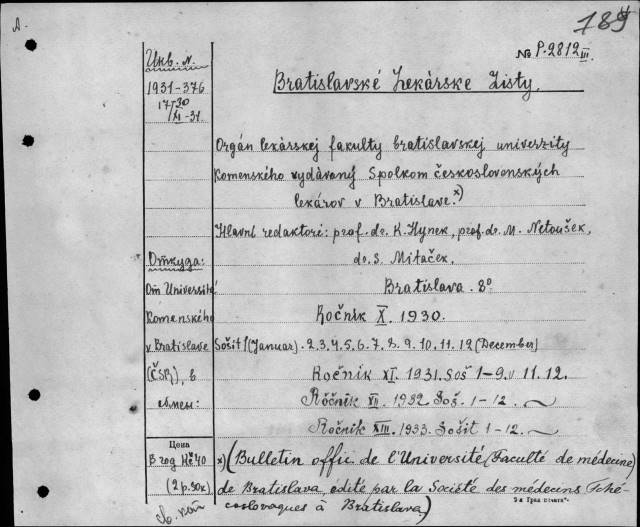 A.
189
№ P.2812 III.
Инв. №.
1931-376
17/30 XI-31.
Bratislavské Lekárske Listy.
Orgán lekárskej fakulty bratislavskej univerzity
Komenského vydávaný Spolkom československých
lekárov v Bratislave.x)
Hlavní redaktoré: prof. dr. K. Hynek, prof. dr. M. Netoušek,
dr. S. Mitaček.
Откуда:
От Université
Komenského
v Bratislave
(ČSR), в
обмен:
Bratislava. 8°
Ročník X. 1930.
Sošit 1 (Januar). 2. 3. 4. 5. 6. 7. 8. 9. 10. 11. 12 (December)
Ročník XI. 1931. Soš 1-9. 11. 12.
Ročník XII. 1932 Soš. 1-12.
Ročník XIII. 1933. Sošit 1-12.
Цена
В год Kč 40
(2 р. 90к)
x) (Bulletin offic. de l'Université (Faculté de médecine)
de Bratislava, édité par la Société des médecins Tché-
coslovaques à Bratislava)